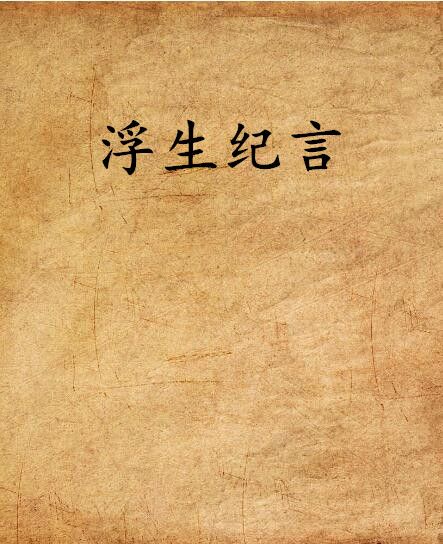 浮生纪言